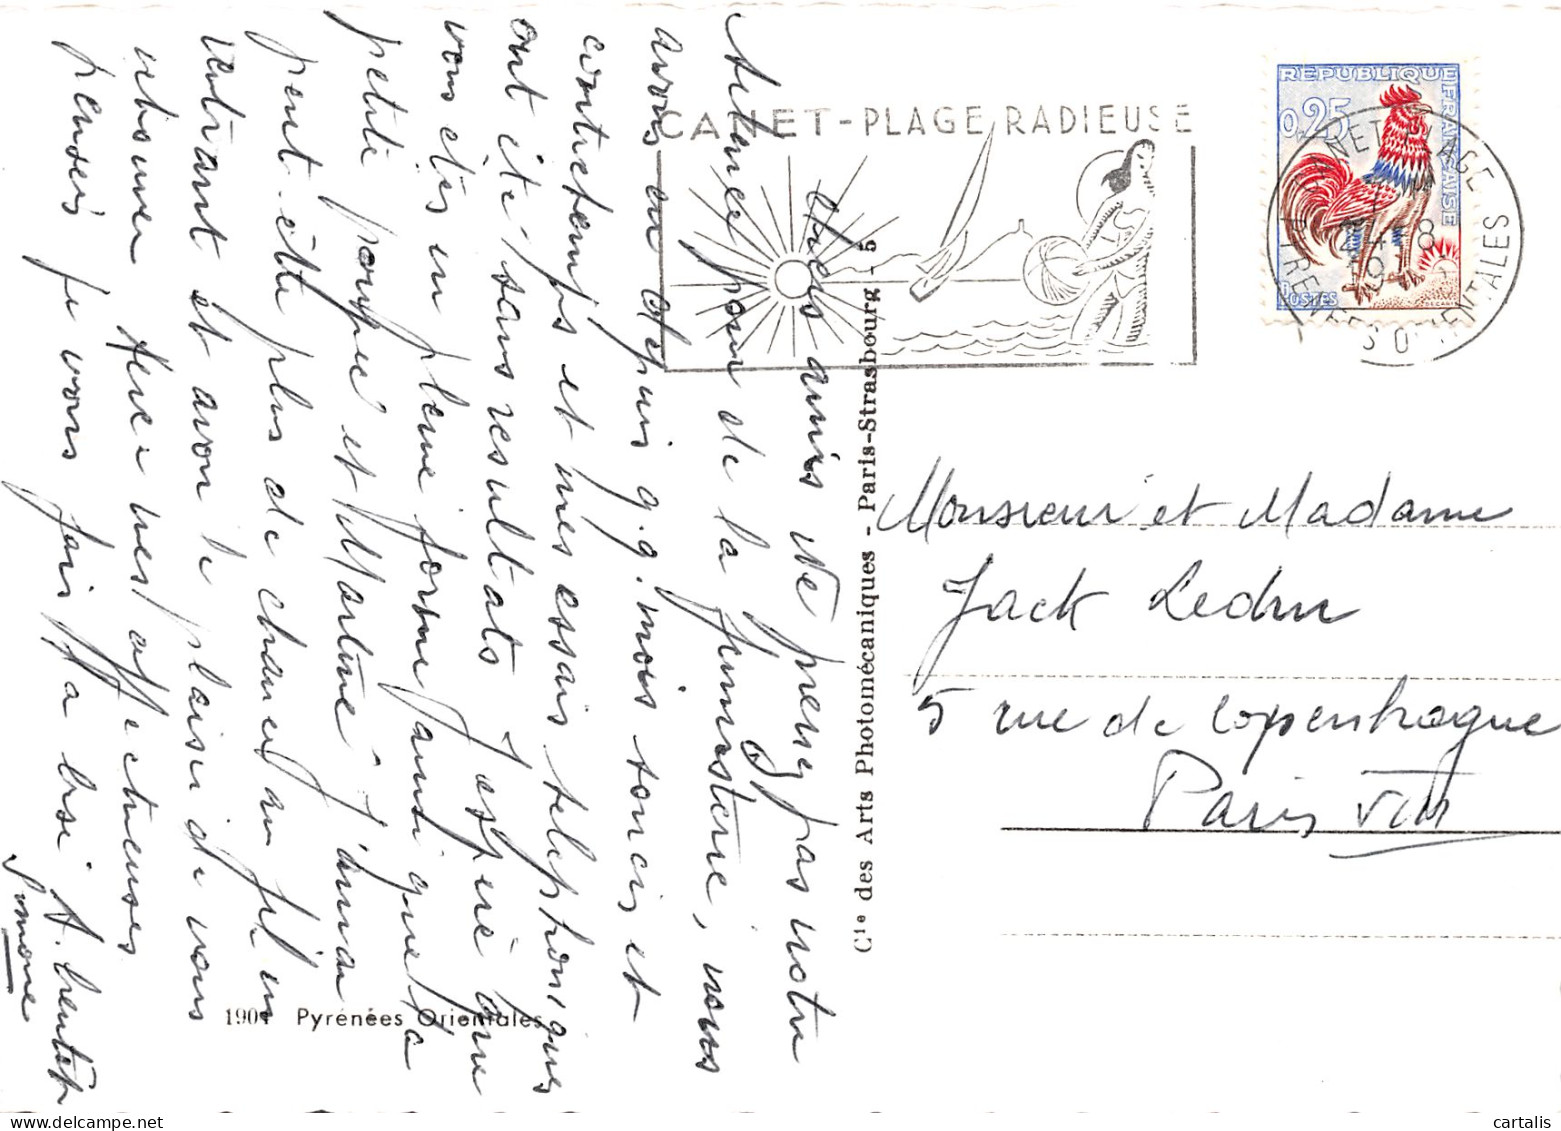 CANET-PLAGE RADIEUSE
REPUBLIQUE FRANÇAISE
0,25
POSTES
CANET PLAGE
24-8
PYRENEES ORIENTALES
Chers amis Ne pensez pas notre
silence pour de la fumisterie, nous
avons eu depuis q.q. mois soucis et
contretemps et mes essais telephoniques
ont été sans resultats J'espère que
vous êtes en pleine forme ainsi que la
petite poupée et Martine
peut-être plus de chance au tel. en
rentrant et avoir le plaisir de vous
pensées je vous fais la bise A. bientôt
Simone
Cie des Arts Photomécaniques - Paris-Strasbourg - 5
Monsieur et Madame
Jack Ledru
5 rue de Copenhague
Paris VIII
1904 Pyrénées Orientales
cartalis